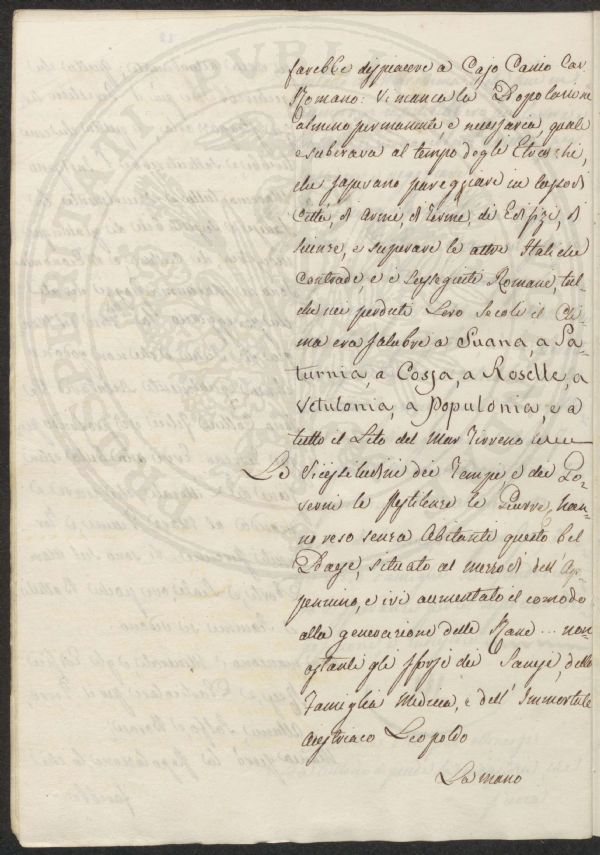 farebbe dispiacere a Cajo Canio Cav.
Romano: Vi manca la Popolazione
almeno permanente, e necessaria, quale
esuberava al tempo degli Etruschi,
che sapevano pareggiare in lusso di
Città, di Armi, di Terme, di Edifizj, di
Scienze, e superare le altre Italiche
Contrade, e le susseguite Romane, tal-
che nei perduti Loro Secoli il Cli-
ma era salubre a Suana, a Sa-
turnia, a Cossa, a Roselle, a
Vetulonia, a Populonia, e a
tutto il Lito del Mar Tirreno
Le Vicissitudini dei Tempi e dei Go-
verni le Pestilenze le Guerre, han-
no reso senza Abitanti questo bel
Paese, situato al mezzodì dell'Ap-
pennino, e ivi aumentato il comodo
alla generazione delle Rane ... non-
ostanti gli sforzi dei Sanesi, della
Famiglia Medicea, e dell'Immortale
Austriaco Leopoldo
La mano
PROSPERITATI